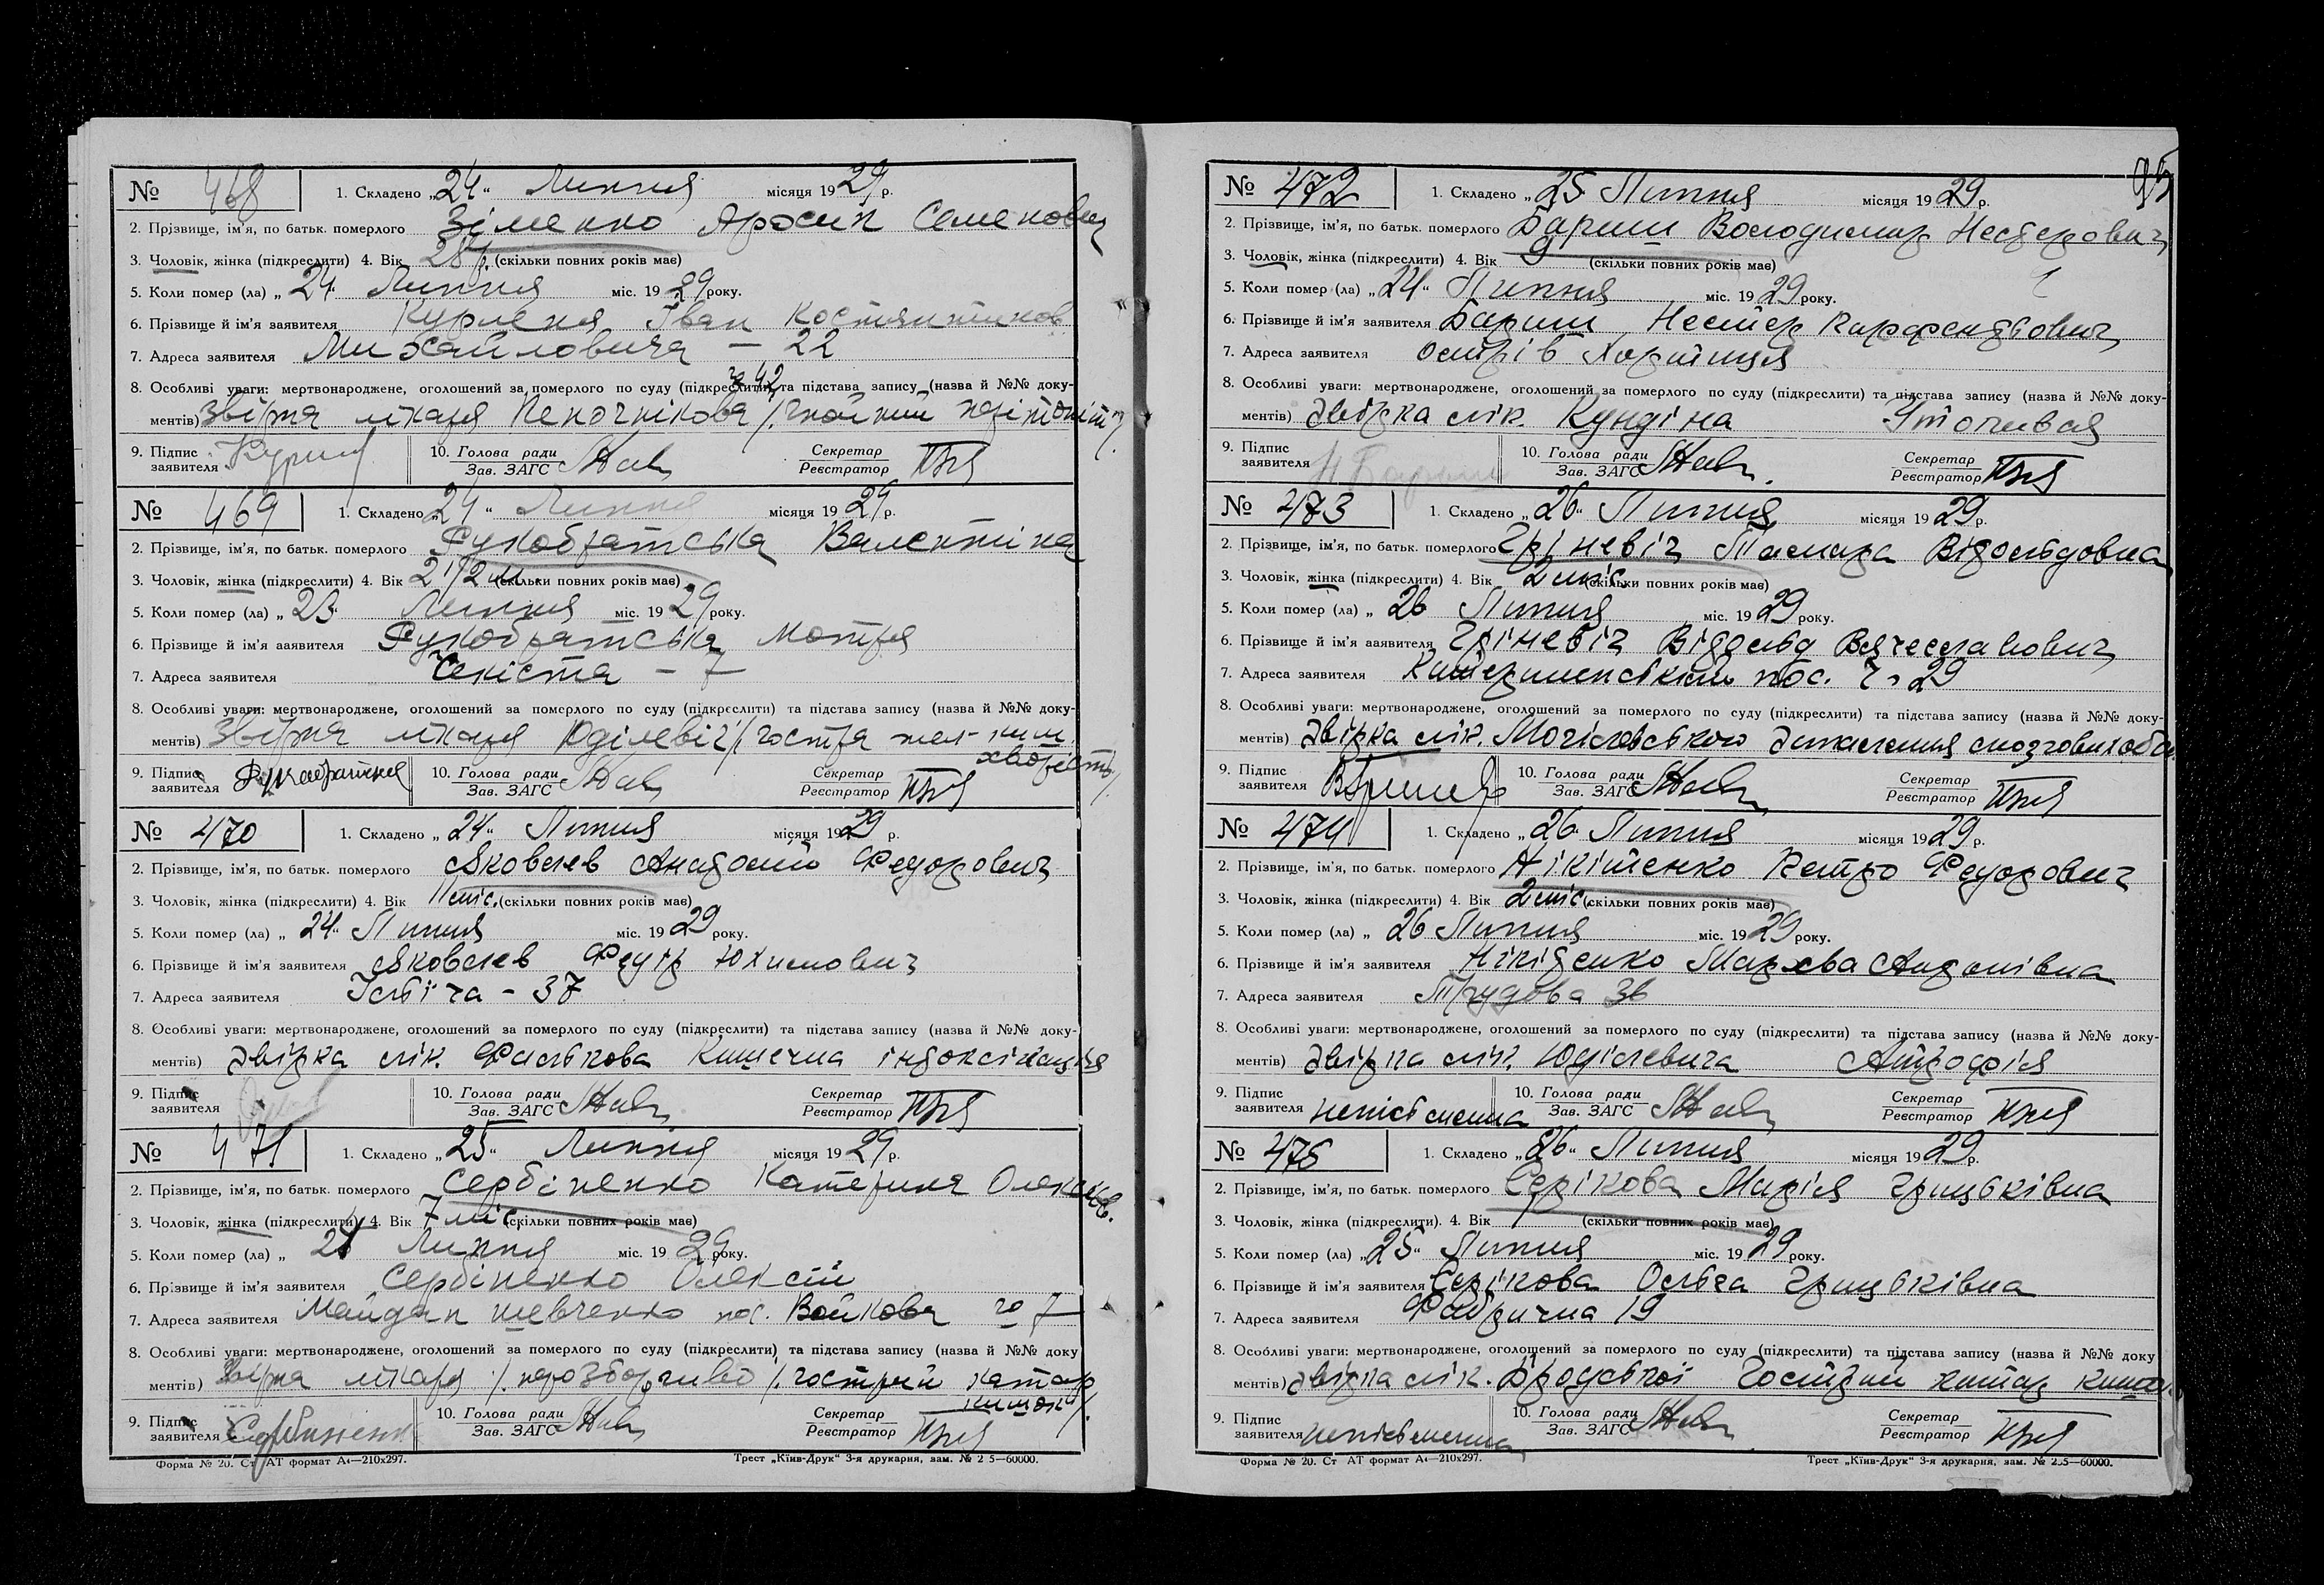 № 468 1. Складено „24“ Липня місяця 1929 р.
2. Прізвище, ім'я, по батьк. померлого Зіменко Арсен Семенович
3. Чоловік, жінка (підкреслити) 4. Вік 28 р. (скільки повних років має)
5. Коли помер (ла) „24“ Липня міс. 1929 року.
6. Прізвище й ім'я заявителя Іван
7. Адреса заявителя Михайловича — 22
8. Особливі уваги: мертвонароджене, оголошений за померлого по суду (підкреслити) та підстава запису (назва й №№ доку-
ментів) лікаря
9. Підпис заявителя 10. Голова ради Зав. ЗАГС Секретар Реєстратор
№ 469 1. Складено „24“ Липня місяця 1929 р.
2. Прізвище, ім'я, по батьк. померлого Рукобратська Валентіна
3. Чоловік, жінка (підкреслити) 4. Вік 2 1/2 м (скільки повних років має)
5. Коли помер (ла) „23“ Липня міс. 1929 року.
6. Прізвище й ім'я заявителя Рукобратська Мотря
7. Адреса заявителя Чекіста — 7
8. Особливі уваги: мертвонароджене, оголошений за померлого по суду (підкреслити) та підстава запису (назва й №№ доку-
ментів) лікаря Юділевіч / гостра
9. Підпис заявителя 10. Голова ради Зав. ЗАГС Секретар Реєстратор
№ 470 1. Складено „24“ Липня місяця 1929 р.
2. Прізвище, ім'я, по батьк. померлого Яковлев Анатолій Федорович
3. Чоловік, жінка (підкреслити) 4. Вік 11 міс. (скільки повних років має)
5. Коли помер (ла) „24“ Липня міс. 1929 року.
6. Прізвище й ім'я заявителя Яковлев Федір Юхимович
7. Адреса заявителя Ілліча – 37
8. Особливі уваги: мертвонароджене, оголошений за померлого по суду (підкреслити) та підстава запису (назва й №№ доку-
ментів) Звірка лік. Фалькова Кишечна індоксікація
9. Підпис заявителя 10. Голова ради Зав. ЗАГС Секретар Реєстратор
№ 471 1. Складено „25“ Липня місяця 1929 р.
2. Прізвище, ім'я, по батьк. померлого Сербіненко Катерина Олексіев.
3. Чоловік, жінка (підкреслити) 4. Вік 7 міс. (скільки повних років має)
5. Коли помер (ла) „24 Липня міс. 1929 року.
6. Прізвище й ім'я заявителя Сербіненко Олексій
7. Адреса заявителя Майдан Шевченко пос. Войкова № 7
8. Особливі уваги: мертвонароджене, оголошений за померлого по суду (підкреслити) та підстава запису (назва й №№ доку
ментів) лікаря /нерозборчиво/ гострий катар
кишок/.
9. Підпис заявителя Сербиненко 10. Голова ради Зав. ЗАГС Секретар Реєстратор
Форма № 20. Ст АТ формат А4—210х297. Трест „Київ-Друк“ 3-я друкарня, зам. № 2 5—60000.
95
№ 472 1. Складено „25 Липня місяця 1929 р.
2. Прізвище, ім'я, по батьк. померлого Бариш Володимир Нестерович
3. Чоловік, жінка (підкреслити) 4. Вік 9 (скільки повних років має)
5. Коли помер (ла) „24“ Липня міс. 1929 року.
6. Прізвище й ім'я заявителя Бариш Нестер
7. Адреса заявителя Острів Хортиця
8. Особливі уваги: мертвонароджене, оголошений за померлого по суду (підкреслити) та підстава запису (назва й №№ доку-
ментів) Звірка лік. Кундіна Утопився
9. Підпис заявителя Н Бариш 10. Голова ради Зав. ЗАГС Секретар Реєстратор
№ 473 1. Складено „26“ Липня місяця 1929 р.
2. Прізвище, ім'я, по батьк. померлого Гріневіч Тамара Відольдовна
3. Чоловік, жінка (підкреслити) 4. Вік 2 міс. (скільки повних років має)
5. Коли помер (ла) „ 26 Липня міс. 1929 року.
6. Прізвище й ім'я заявителя Гріневіч Відольд Вячеславович
7. Адреса заявителя пос. 29
8. Особливі уваги: мертвонароджене, оголошений за померлого по суду (підкреслити) та підстава запису (назва й №№ доку-
ментів) Звірка лік. Могілевського Запалення мозгових
9. Підпис заявителя 10. Голова ради Зав. ЗАГС Секретар Реєстратор
№ 474 1. Складено „26“ Липня місяця 1929 р.
2. Прізвище, ім'я, по батьк. померлого Нікітенко Петро Федорович
3. Чоловік, жінка (підкреслити) 4. Вік 2 міс. (скільки повних років має)
5. Коли помер (ла) „ 26 Липня міс. 1929 року.
6. Прізвище й ім'я заявителя Нікіденко Андонівна
7. Адреса заявителя Трудова 36
8. Особливі уваги: мертвонароджене, оголошений за померлого по суду (підкреслити) та підстава запису (назва й №№ доку-
ментів) Звірка лік. Юділевича Атрофія
9. Підпис заявителя неписьменна 10. Голова ради Зав. ЗАГС Секретар Реєстратор
№ 475 1. Складено „26“ Липня місяця 1929 р.
2. Прізвище, ім'я, по батьк. померлого Серікова Марія Грицьківна
3. Чоловік, жінка (підкреслити). 4. Вік 1 (скільки повних років має)
5. Коли помер (ла) „25“ Липня міс. 1929 року.
6. Прізвище й ім'я заявителя Серікова Ольга Грицьківна
7. Адреса заявителя Фабрична 19
8. Особливі уваги: мертвонароджене, оголошений за померлого по суду (підкреслити) та підстава запису (назва й №№ доку
ментів) Звірка лік. Бродської Гострий катар кишок
9. Підпис заявителя неписьменна 10. Голова ради Зав. ЗАГС Секретар Реєстратор
Форма № 20. Ст АТ формат А4—210х297. Трест „Київ-Друк“ 3-я друкарня, зам. № 235—60000.